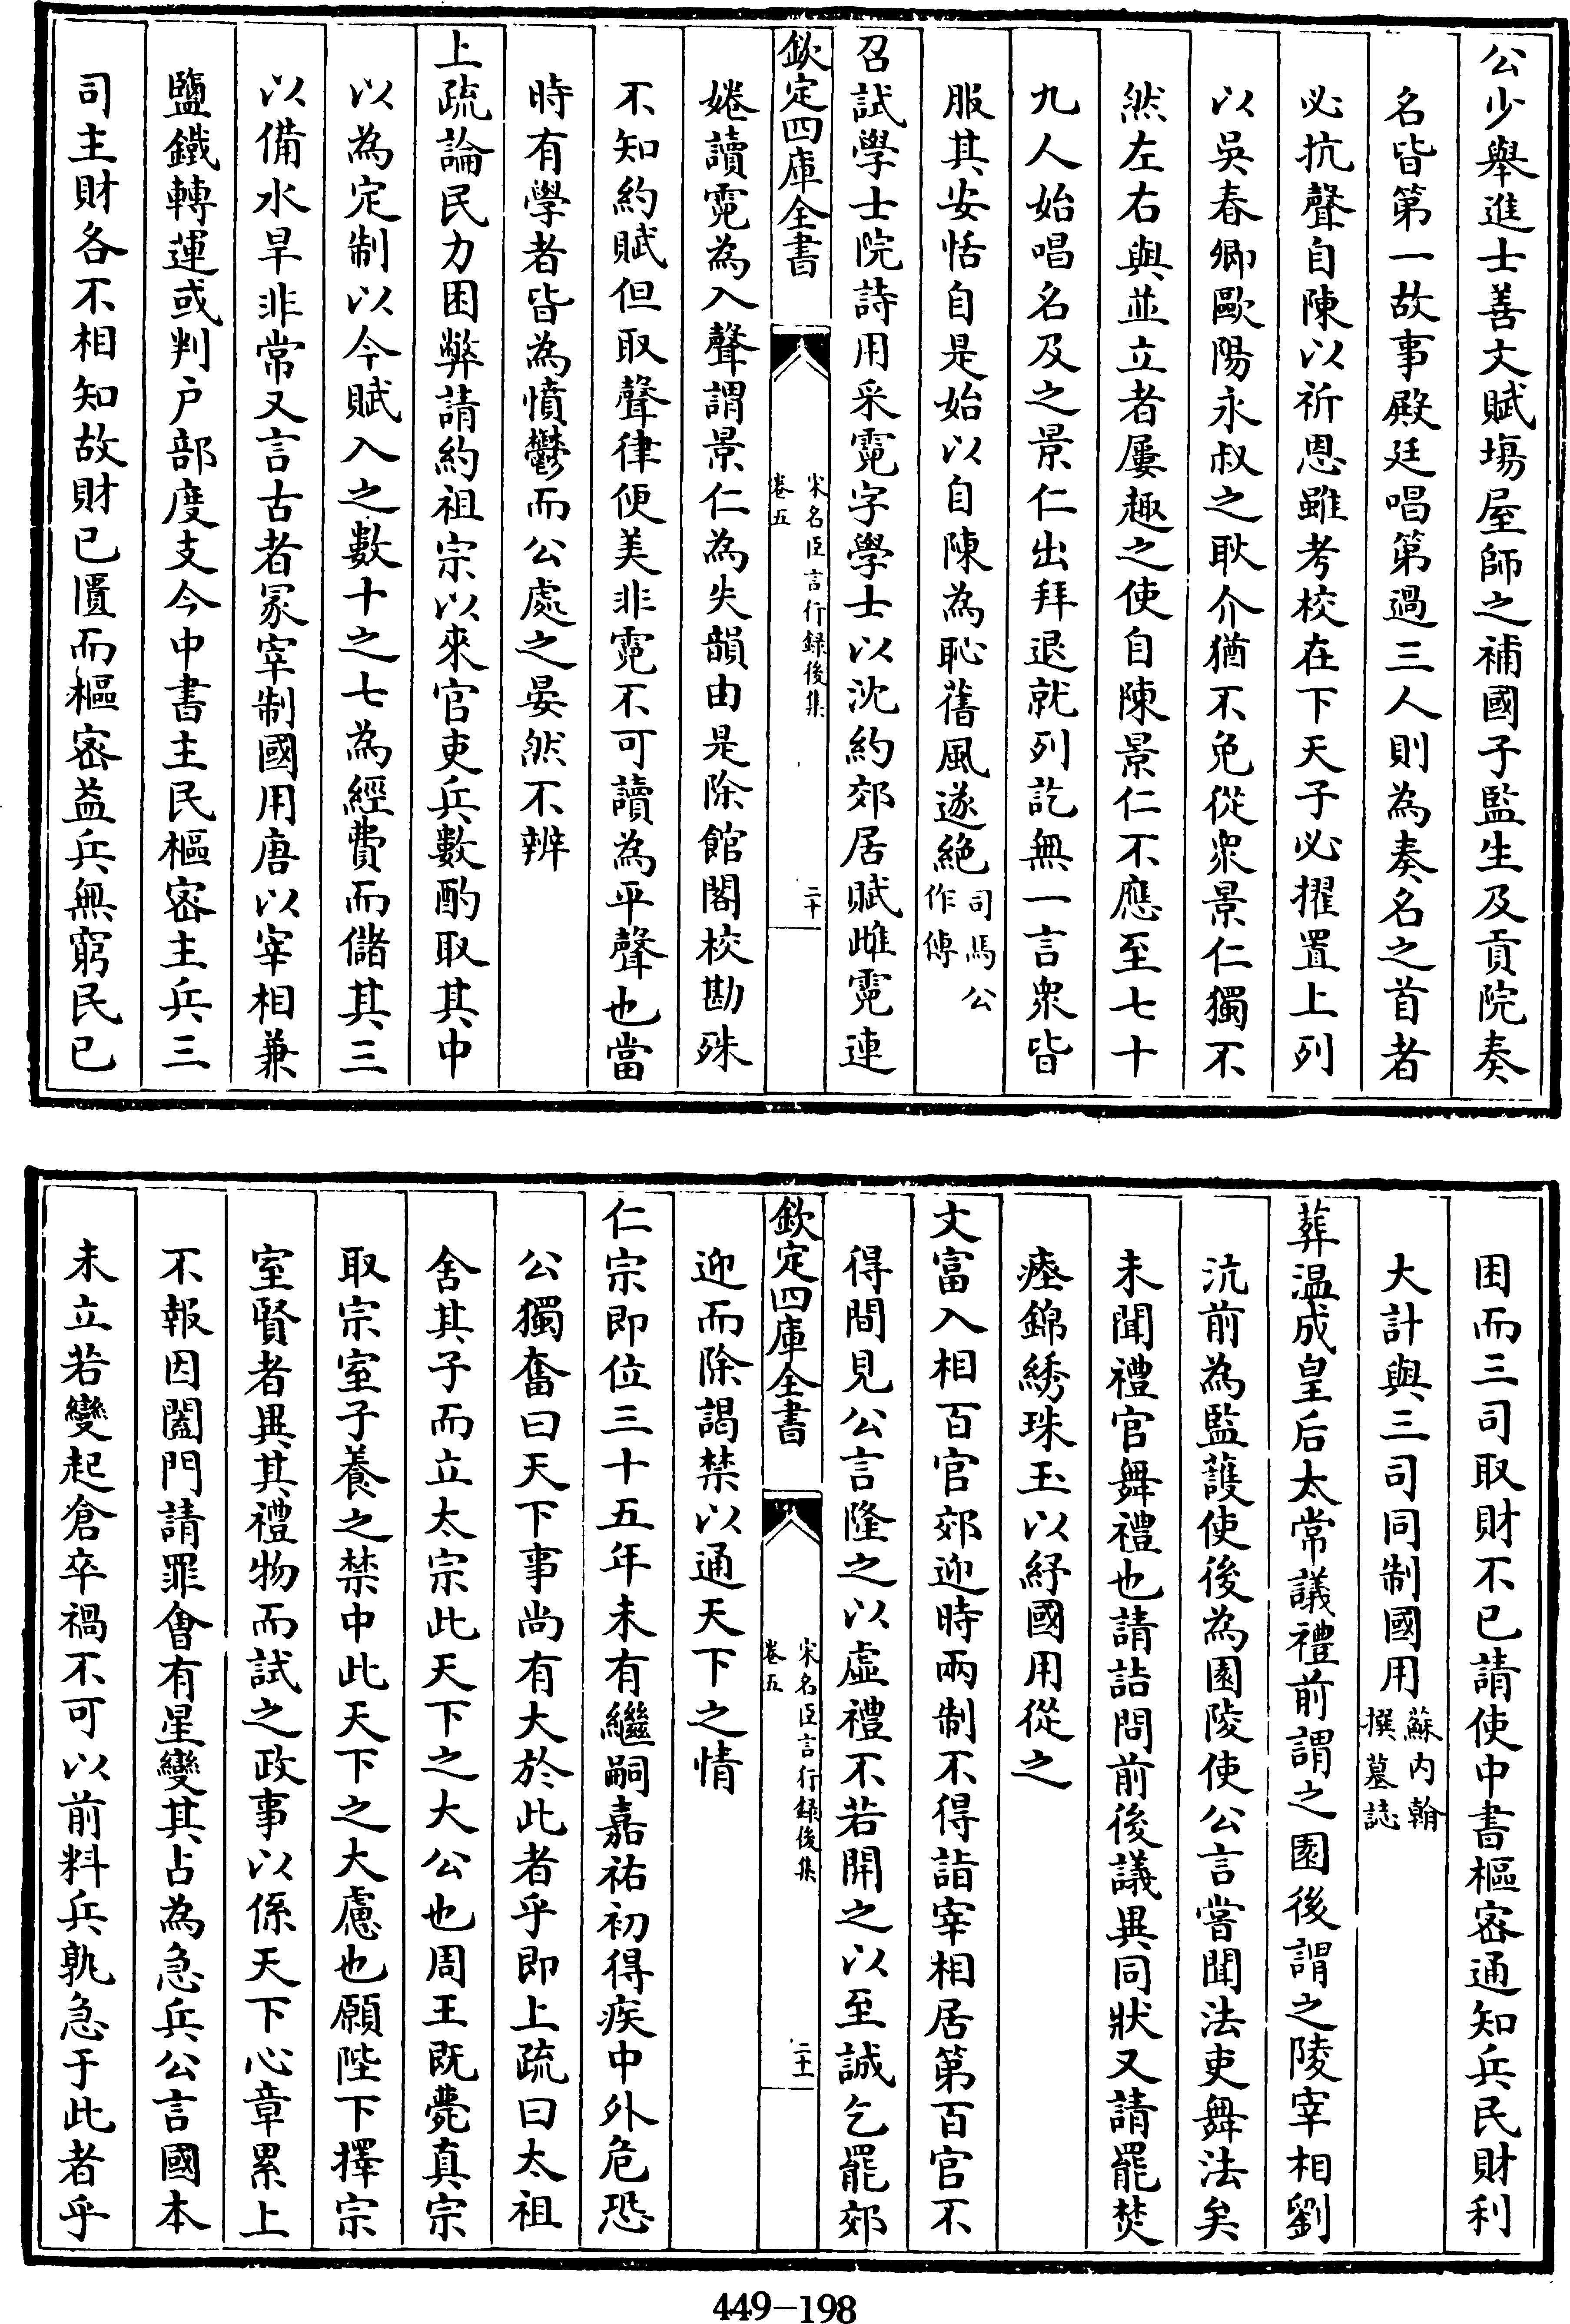 公少舉進士善文賦塲屋師之補國子監生及貢院奏
名皆第一故事殿廷唱第過三人則為奏名之首者
必抗聲自陳以祈恩雖考校在下天子必擢置上列
以吳春卿歐陽永叔之耿介猶不免從衆景仁獨不
然左右與並立者屢趣之使自陳景仁不應至七十
九人始唱名及之景仁出拜退就列訖無一言衆皆
服其安恬自是始以自陳為恥舊風遂絶司馬公作傳
召試學士院詩用采霓字學士以沈約郊居賦雌霓連
欽定四庫全書
宋名臣言行録後集
卷五
二十
蜷讀霓為入聲謂景仁為失韻由是除館閣校勘殊
不知約賦但取聲律便美非霓不可讀為平聲也當
時有學者皆為憤鬱而公處之晏然不辨
上疏論民力困弊請約祖宗以來官吏兵數酌取其中
以為定制以今賦入之數十之七為經費而儲其三
以備水旱非常又言古者冡宰制國用唐以宰相兼
鹽鐵轉運或判户部度支今中書主民樞密主兵三
司主財各不相知故財已匱而樞密益兵無窮民已
困而三司取財不已請使中書樞密通知兵民財利
大計與三司同制國用蘇内翰撰墓誌
葬温成皇后太常議禮前謂之園後謂之陵宰相劉
沆前為監護使後為園陵使公言嘗聞法吏舞法矣
未聞禮官舞禮也請詰問前後議異同狀又請罷焚
瘞錦綉珠玉以紓國用從之
文富入相百官郊迎時兩制不得詣宰相居第百官不
得間見公言隆之以虛禮不若開之以至誠乞罷郊
欽定四庫全書
宋名臣言行録後集
卷五
二十一
迎而除謁禁以通天下之情
仁宗即位三十五年未有繼嗣嘉祐初得疾中外危恐
公獨奮曰天下事尚有大於此者乎即上疏曰太祖
舍其子而立太宗此天下之大公也周王既薨真宗
取宗室子養之禁中此天下之大慮也願陛下擇宗
室賢者異其禮物而試之政事以係天下心章累上
不報因闔門請罪會有星變其占為急兵公言國本
未立若變起倉卒禍不可以前料兵孰急于此者乎
449-198